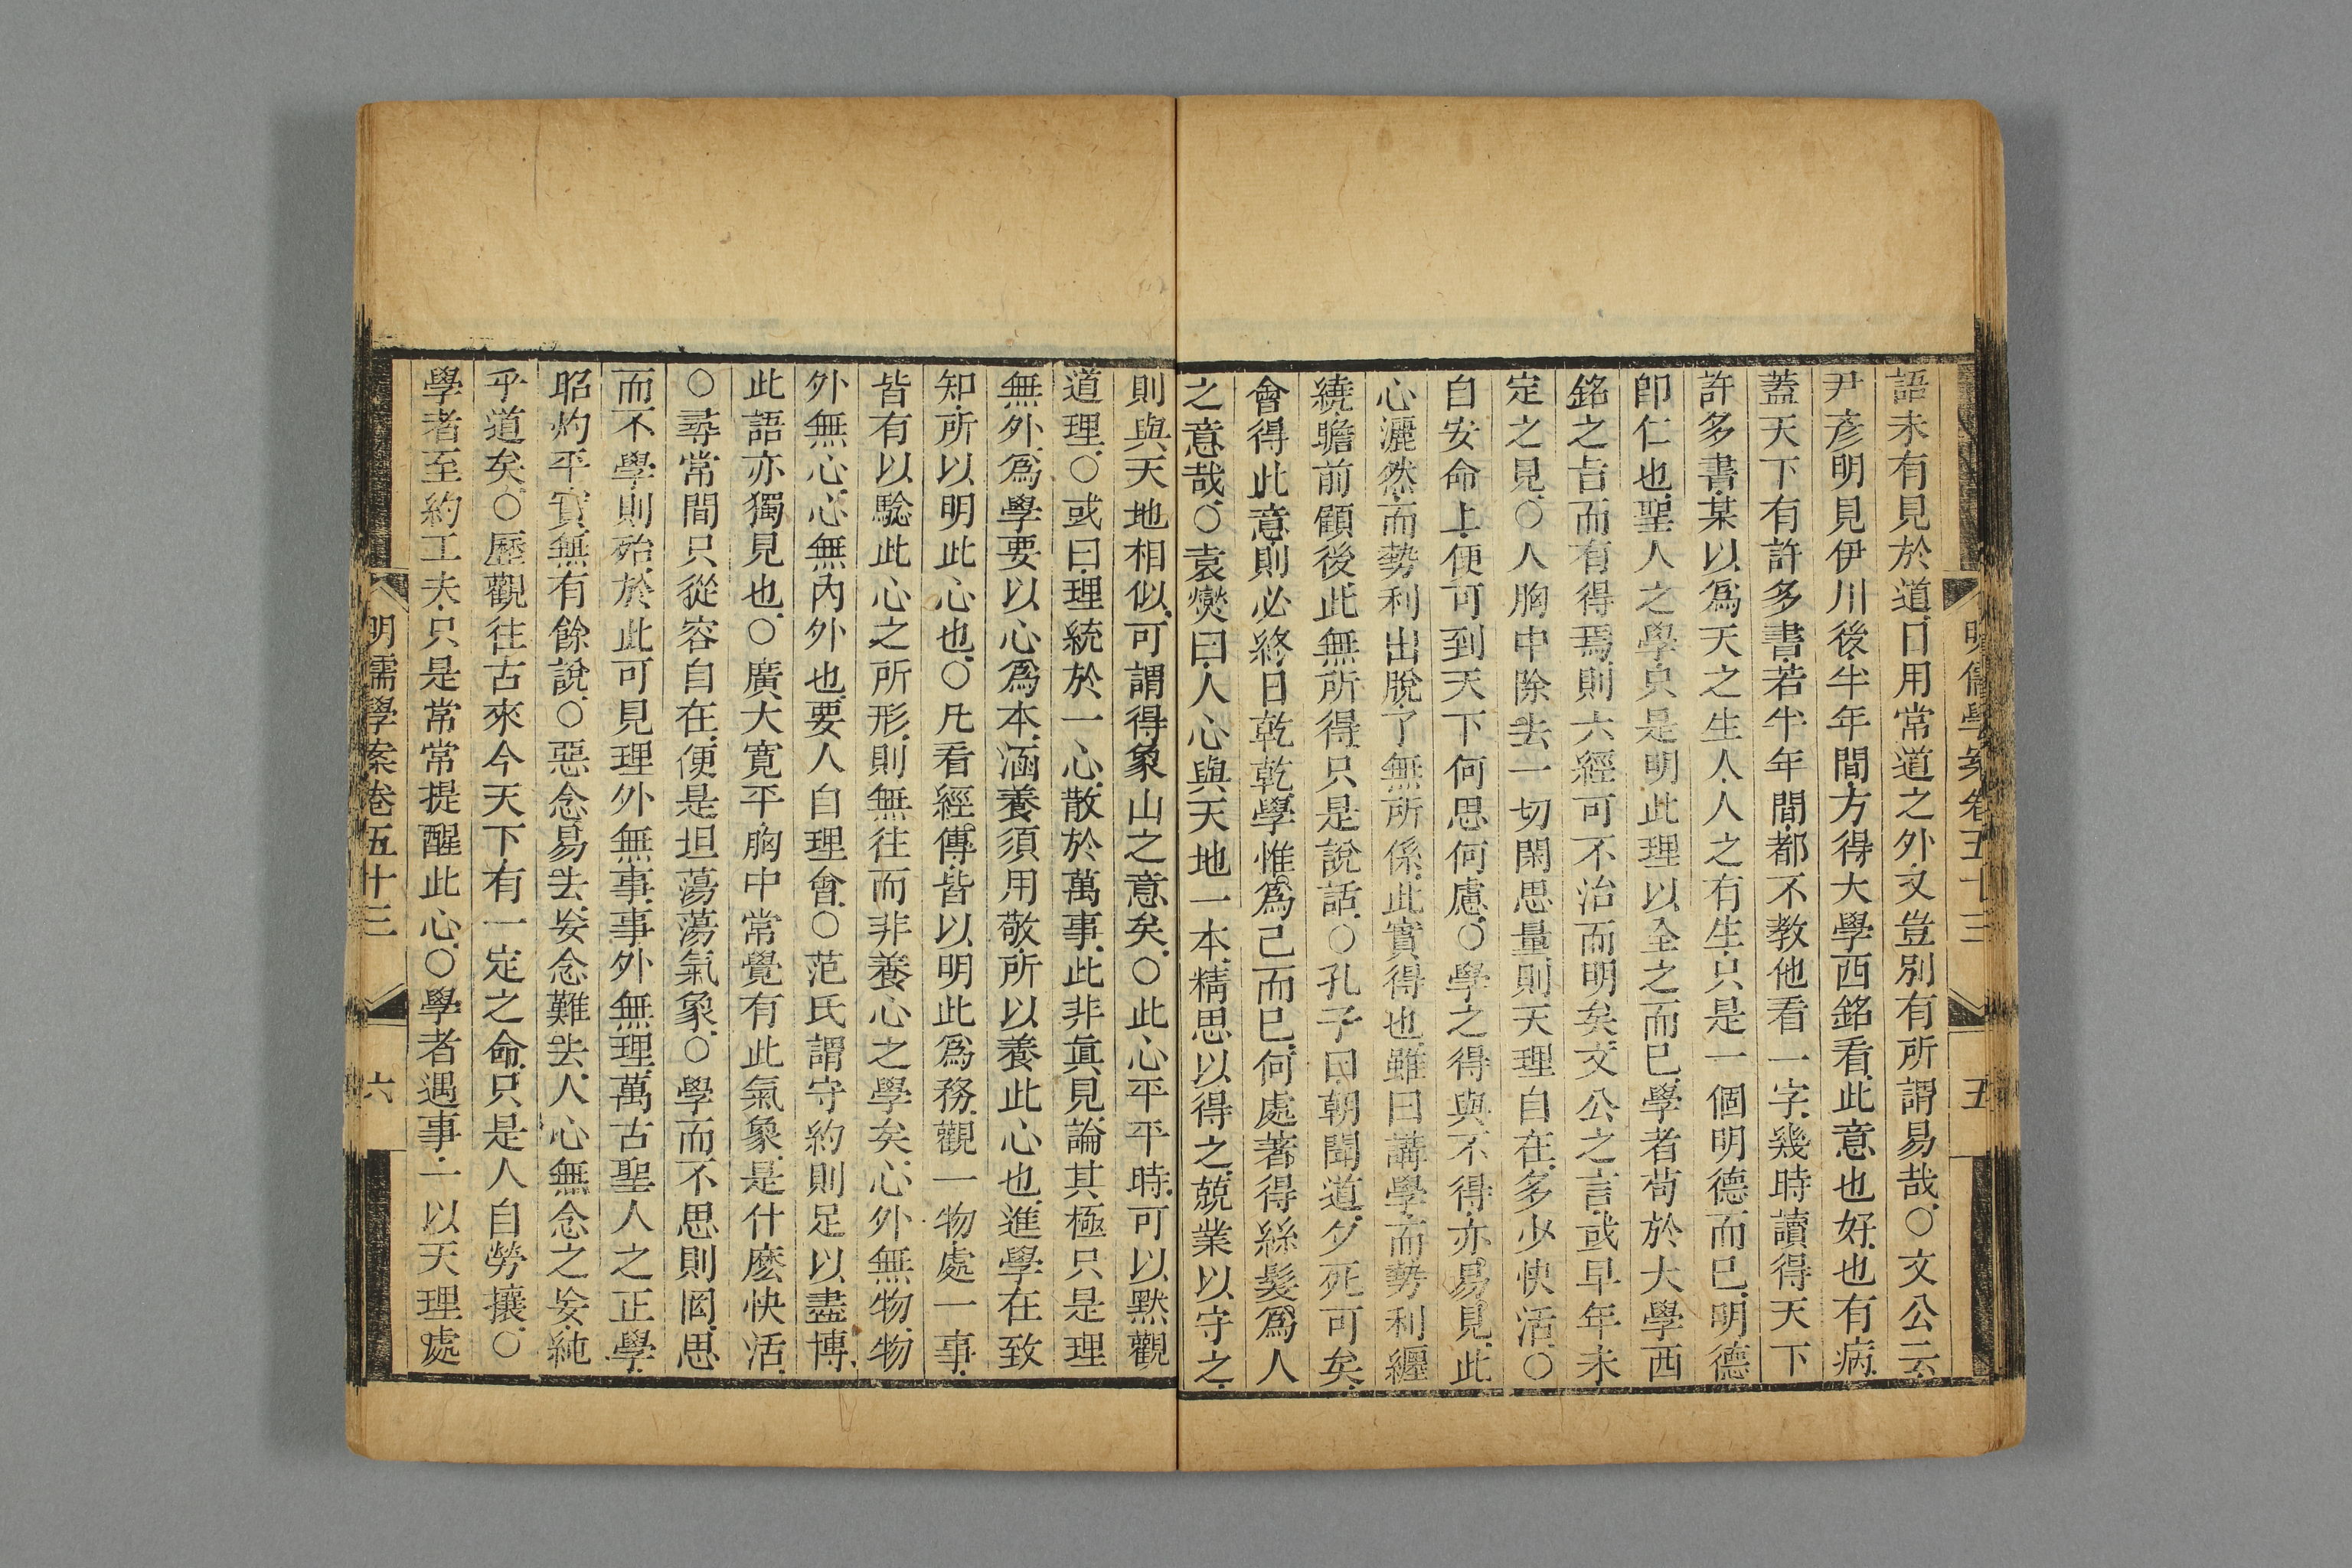 明儒學案卷五十三
五
語未有見於道日用常道之外又豈別有所謂易哉○文公云
尹彥明見伊川後半年間方得大學西銘看此意也好也有病
蓋天下有許多書若半年間都不教他看一字幾時讀得天下
許多書某以爲天之生人人之有生只是一個明德而已明德
卽仁也聖人之學只是明此理以全之而已學者苟於大學西
銘之旨而有得焉則六經可不治而明矣文公之言或早年未
定之見○人胸中除去一切閑思量則天理自在多少快活○
自安命上便可到天下何思何慮○學之得與不得亦易見此
心灑然而勢利出脫了無所係此實得也雖曰講學而勢利纏
繞瞻前顧後此無所得只是說話○孔子曰朝聞道夕死可矣
會得此意則必終日乾乾學惟爲己而已何處著得絲髮爲人
之意哉○袁爕曰人心與天地一本精思以得之兢業以守之
則與天地相似可謂得象山之意矣○此心平平時可以默觀
道理○或曰理統於一心散於萬事此非眞見論其極只是理
無外爲學要以心爲本涵養須用敬所以養此心也進學在致
知所以明此心也○凡看經傳皆以明此爲務觀一物處一事
皆有以驗此心之所形則無往而非養心之學矣心外無物物
外無心心無內外也要人自理會○范氏謂守約則足以盡博
此語亦獨見也○廣大寬平胸中常覺有此氣象是什麽快活
○尋常間只從容自在便是坦蕩蕩氣象○學而不思則罔思
而不學則殆於此可見理外無事事外無理萬古聖人之正學
昭灼平實無有餘說○惡念易去妄念難去人心無念之妄純
乎道矣○歷觀往古來今天下有一定之命只是人自勞攘○
學者至約工夫只是常常提醒此心○學者遇事一以天理處
明儒學案卷五十三
六